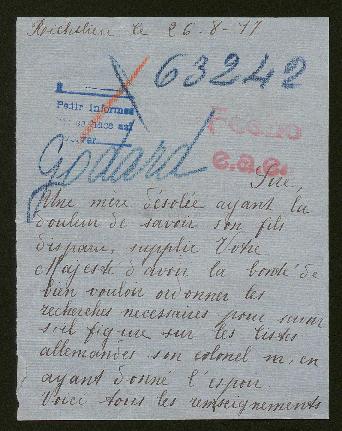 Richelieu le 26-8-17
63242
Pedir informes
Fecho
c.a.c.
Godard
Sire,
Une mère désolée ayant la
douleur de savoir son fils
disparu, supplie Votre
Majesté d'avoir la bonté de
bien vouloir ordonner les
recherches necessaires pour savoir
s'il figure sur les listes
allemandes son colonel m'en
ayant donné l'espoir
Voici tous les renseignements